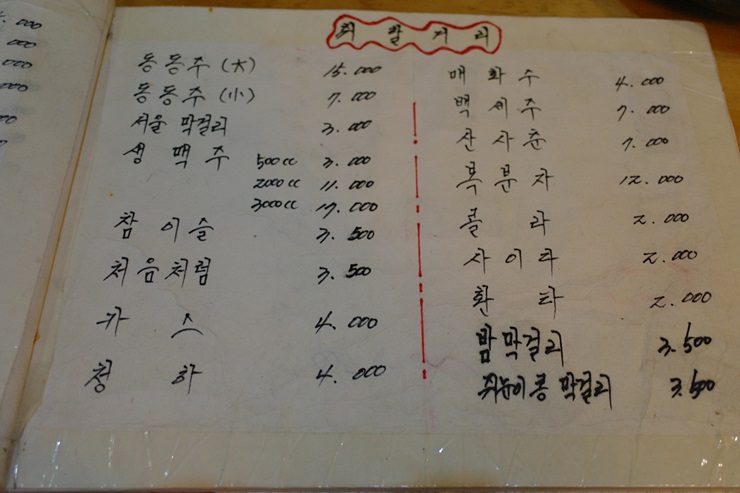 취할거리
동동주(大) 15.000
동동주(小) 7.000
서울 막걸리 3.000
생맥주 500cc 3.000
2000cc 11.000
3000cc 17.000
참이슬 3.500
처음처럼 3.500
카스 4.000
청하 4.000
매화수 4.000
백세주 7.000
산사춘 7.000
복분자 12.000
콜라 2.000
사이다 2.000
환타 2.000
밤막걸리 3.500
쥐눈이콩 막걸리 3.500